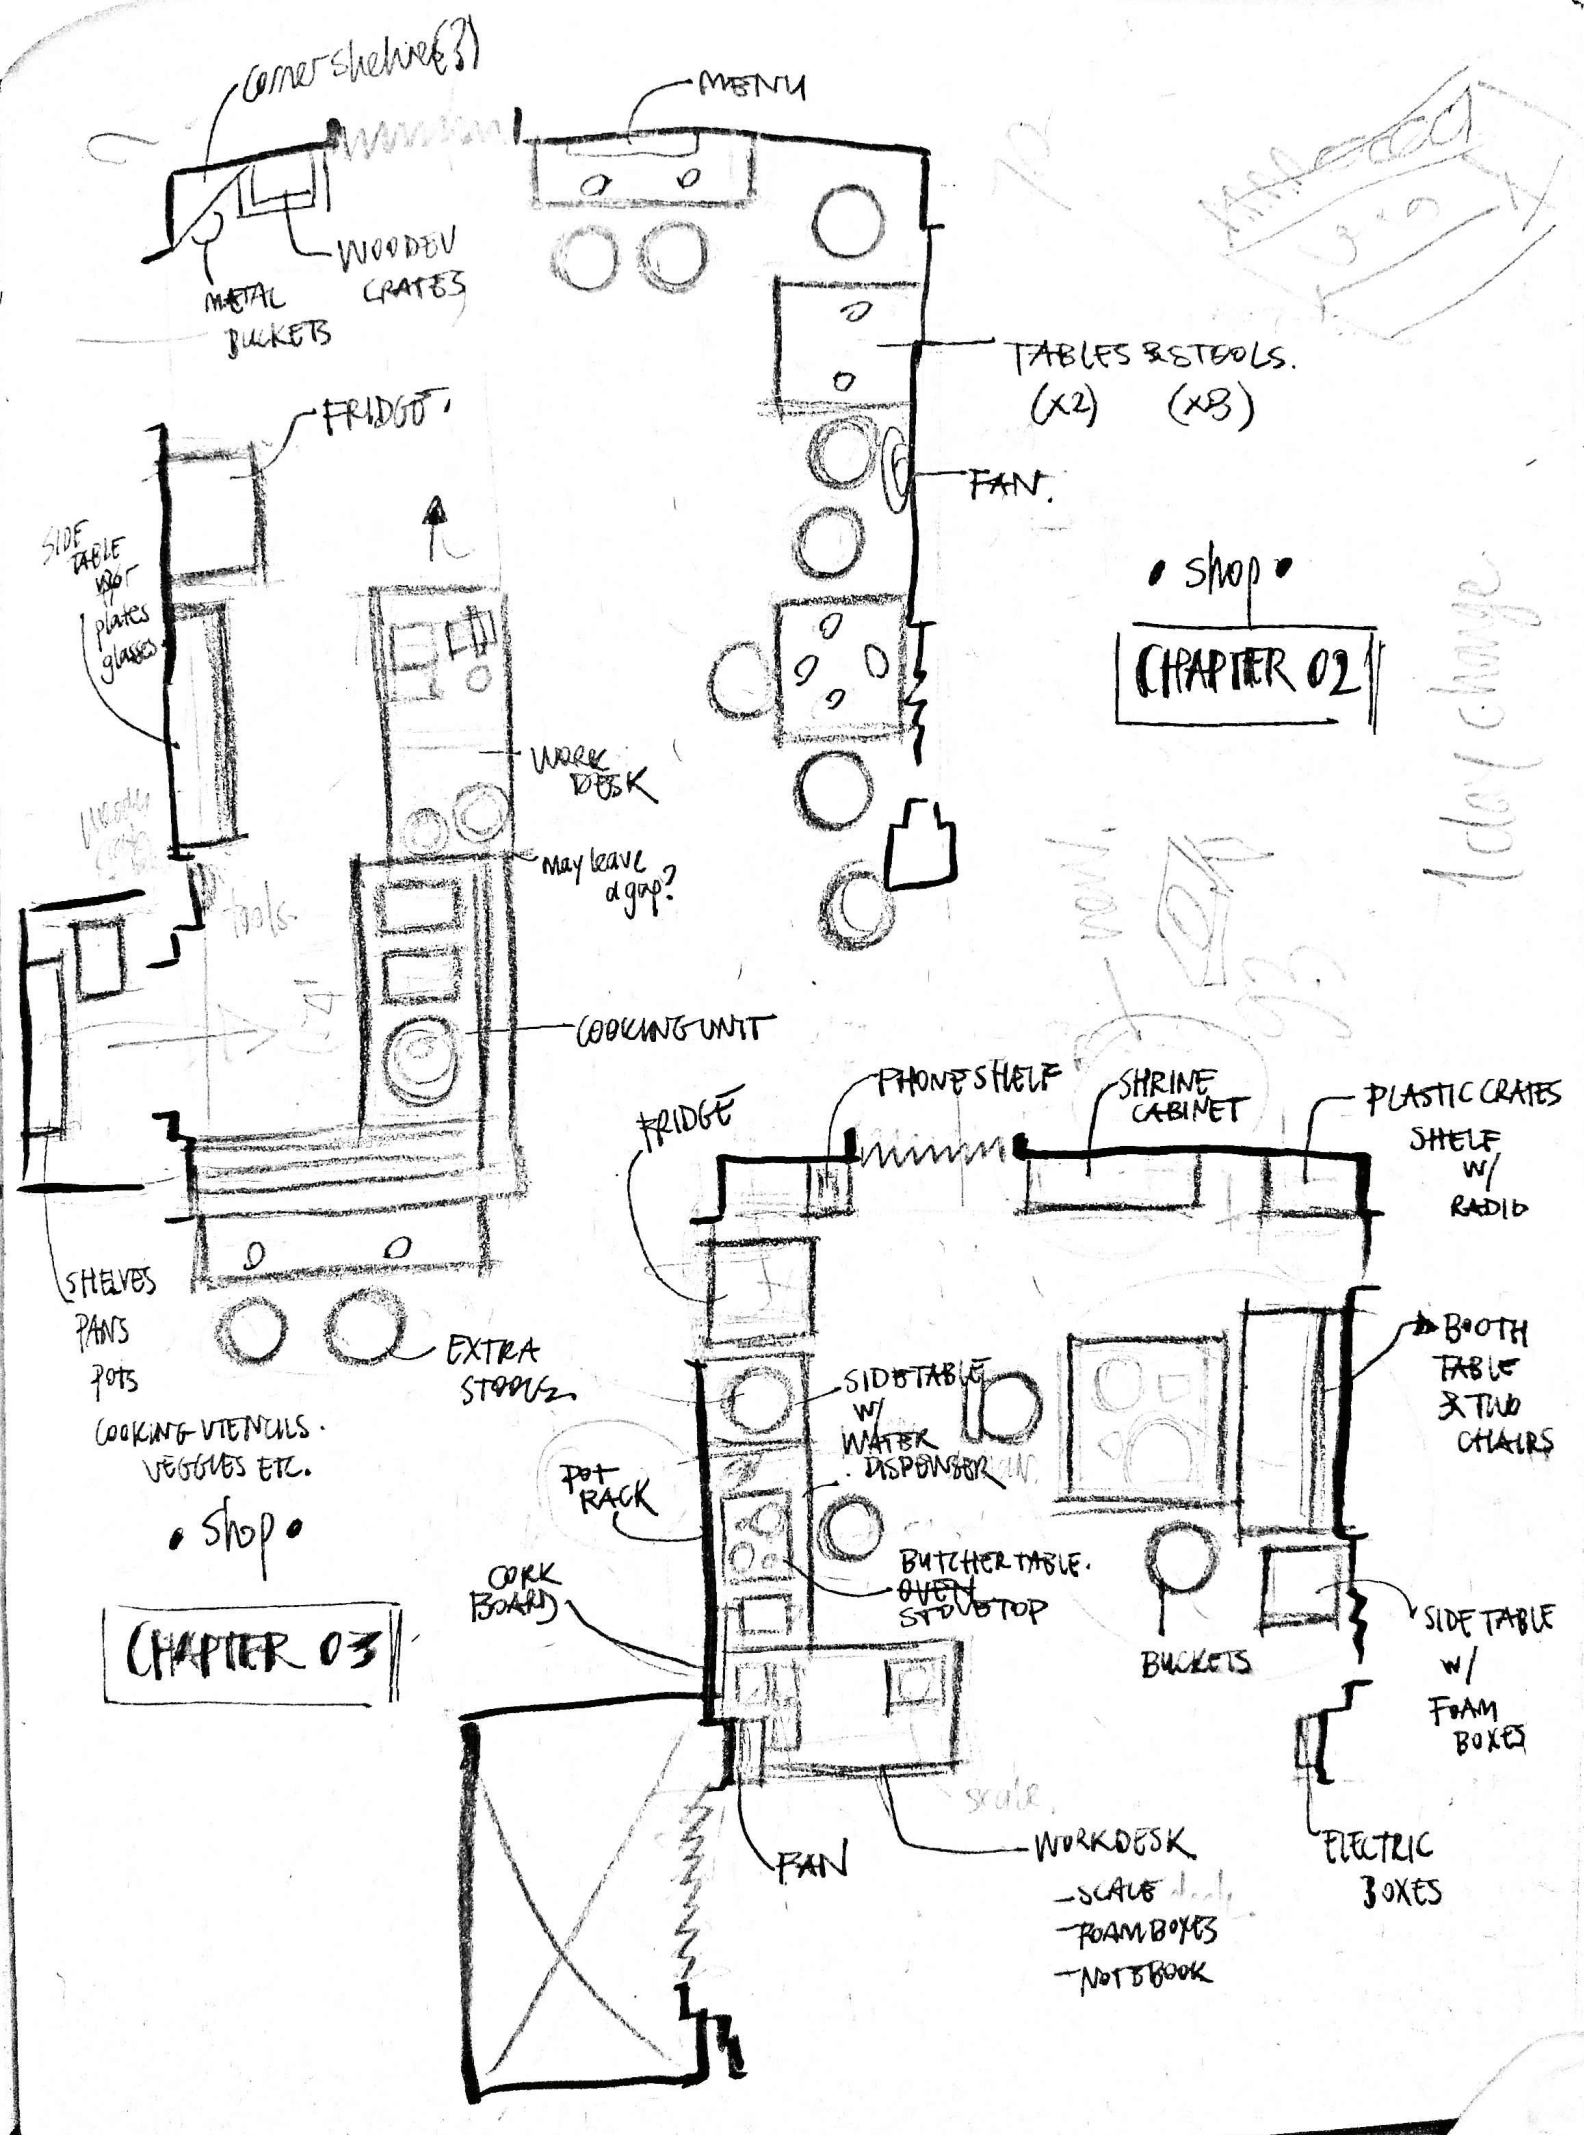 corner shelve(?)
MENU
WOODEN
CRATES
METAL
BUCKETS
FRIDGE.
TABLES & STOOLS.
(x2) (x8)
FAN.
SIDE
TABLE
plates
glasses
• shop •
CHAPTER 02
1 day change
WORK
DESK
May leave
a gap?
tools.
COOKING UNIT
SHELVES
PANS
POTS
COOKING UTENCILS.
VEGGIES ETC.
EXTRA
STOOLS.
• shop •
CHAPTER 03
FRIDGE
PHONE SHELF
SHRINE
CABINET
PLASTIC CRATES
SHELF
W/
RADIO
BOOTH
TABLE
& TWO
CHAIRS
SIDETABLE
W/
WATER
DISPENSER
POT
RACK
CORK
BOARD
BUTCHER TABLE.
OVEN
STOVETOP
BUCKETS
SIDE TABLE
W/
FOAM
BOXES
scale
FAN
WORKDESK
- SCALE
- FOAM BOXES
- NOTEBOOK
ELECTRIC
BOXES